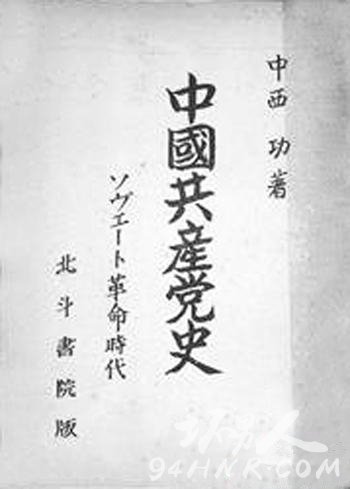 中西 功著
中國共産党史
ソヴエート革命時代
北斗書院版
94HNR.COM